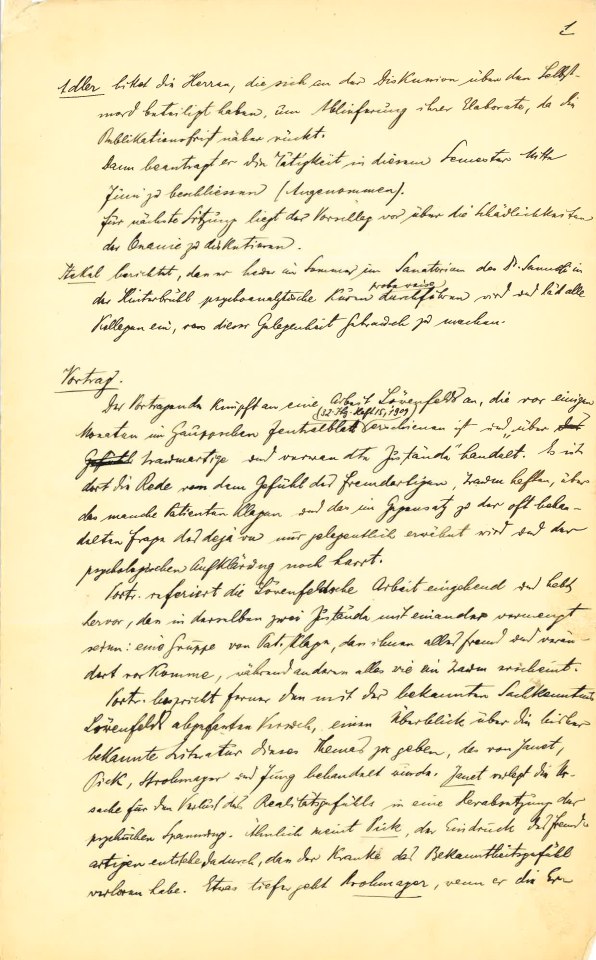 1
Adler bittet die Herren, die sich an der Diskussion über den Selbst-
mord beteiligt haben, um Ablieferung ihrer Elaborate, da die
Publikationsfrist näher rückt.
Dann beantragt er die Tätigkeit in diesem Semester Mitte
Juni zu beschliessen (Angenommen).
Für nächste Sitzung liegt der Vorschlag vor über die Schädlichkeiten
der Onanie zu diskutieren.
Stekel berichtet, dass er heuer im Sommer im Sanatorium des Dr. in
der Hinterbrühl psychoanalytische Kuren probeweise durchführen wird und läd alle
Kollegen ein, von dieser Gelegenheit Gebrauch zu machen.
Vortrag.
Der Vortragende knüpft an eine Arbeit Lövenfelds an, die vor einigen
Monaten im Gauppschen Zentralblatt (32. Jhg. Heft 15, 1909) erschienen ist und „über
traumartige und verwandte Zustände“ handelt. Es ist
dort die Rede von dem Gefühl des fremdartigen, traumhaften, über
das manche Patienten klagen und das im Gegensatz zu der oft behan-
delten Frage des dejà vu nur gelegentlich erwähnt wird und der
psychologischen Aufklärung noch harrt.
Vortr. referiert die Lövenfeldsche Arbeit eingehend und hebt
hervor, dass in derselben zwei Zustände mit einander vermengt
seien: eine Gruppe von Pat. klage, dass ihnen alles fremd und verän-
dert vorkomme, während anderen alles wie ein Traum erscheint.
Vortr. bespricht ferner den mit der bekannten Sachkenntnis
Lövenfelds abgefassten Versuch, einen Überblick über die bisher
bekannte Literatur dieses Themas zu geben, das von Janet,
Pick, Strohmayer und Jung behandelt wurde. Janet verlegt die Ur-
sache für den Verlust des Realitätsgefühls in eine Herabsetzung der
psychischen Spannung. Ähnlich meint Pick, der Eindruck des fremd-
artigen entstehe dadurch, dass der Kranke das Bekanntheitsgefühl
verloren habe. Etwas tiefer geht Strohmayer, wenn er die